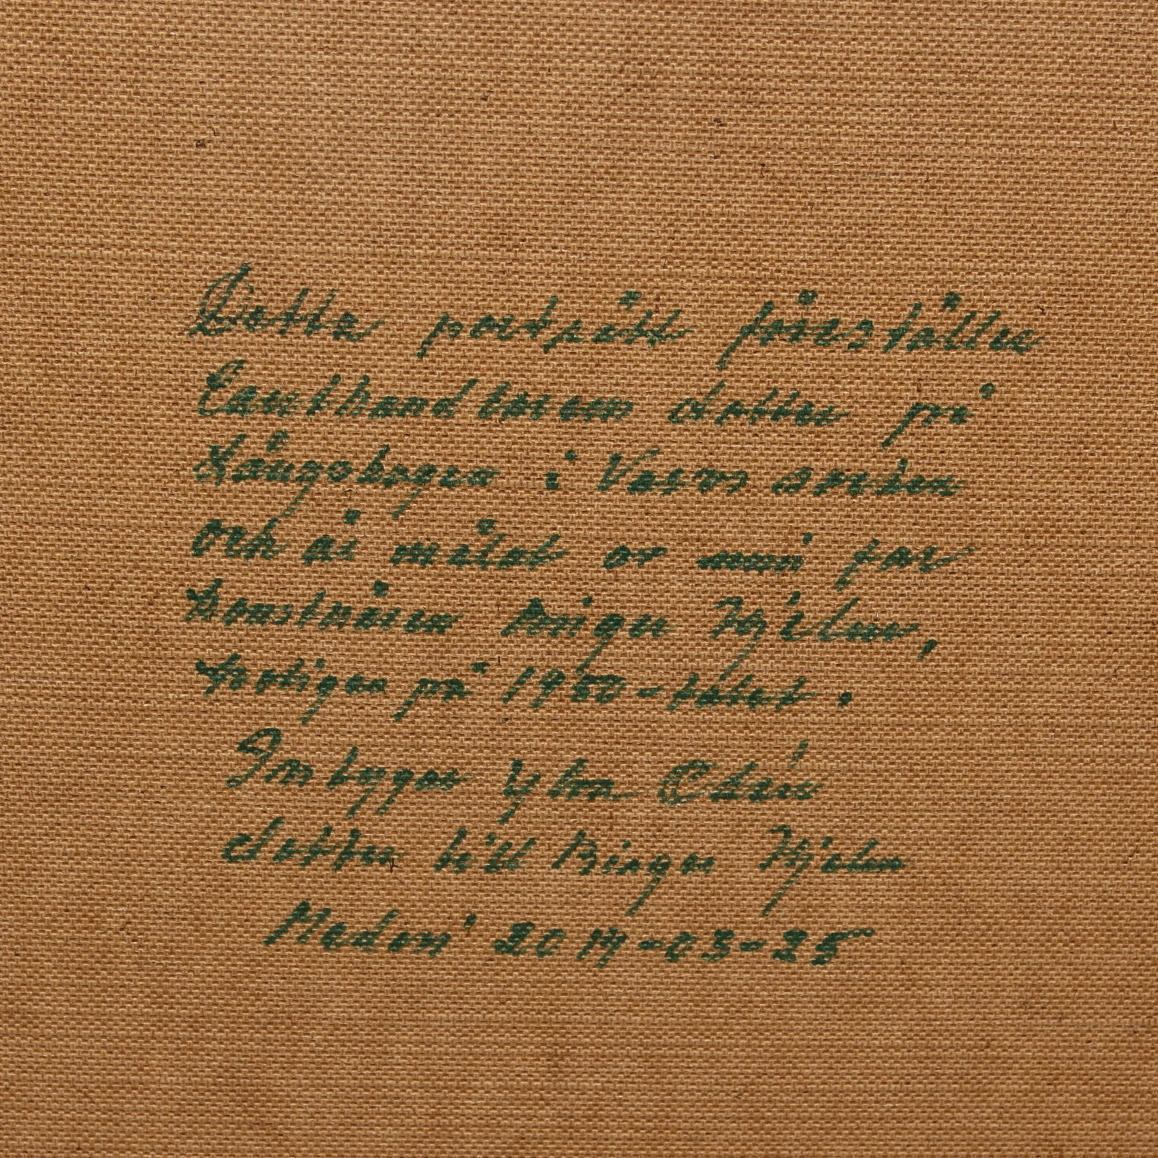 Detta porträtt föreställer
Lanthandlarens dotter på
Långskogen i socken
och är målat av min far
konstnären Birger Hjelm,
troligen på 1950-talet.
Intygar dotter till Birger Hjelm
2014-03-25